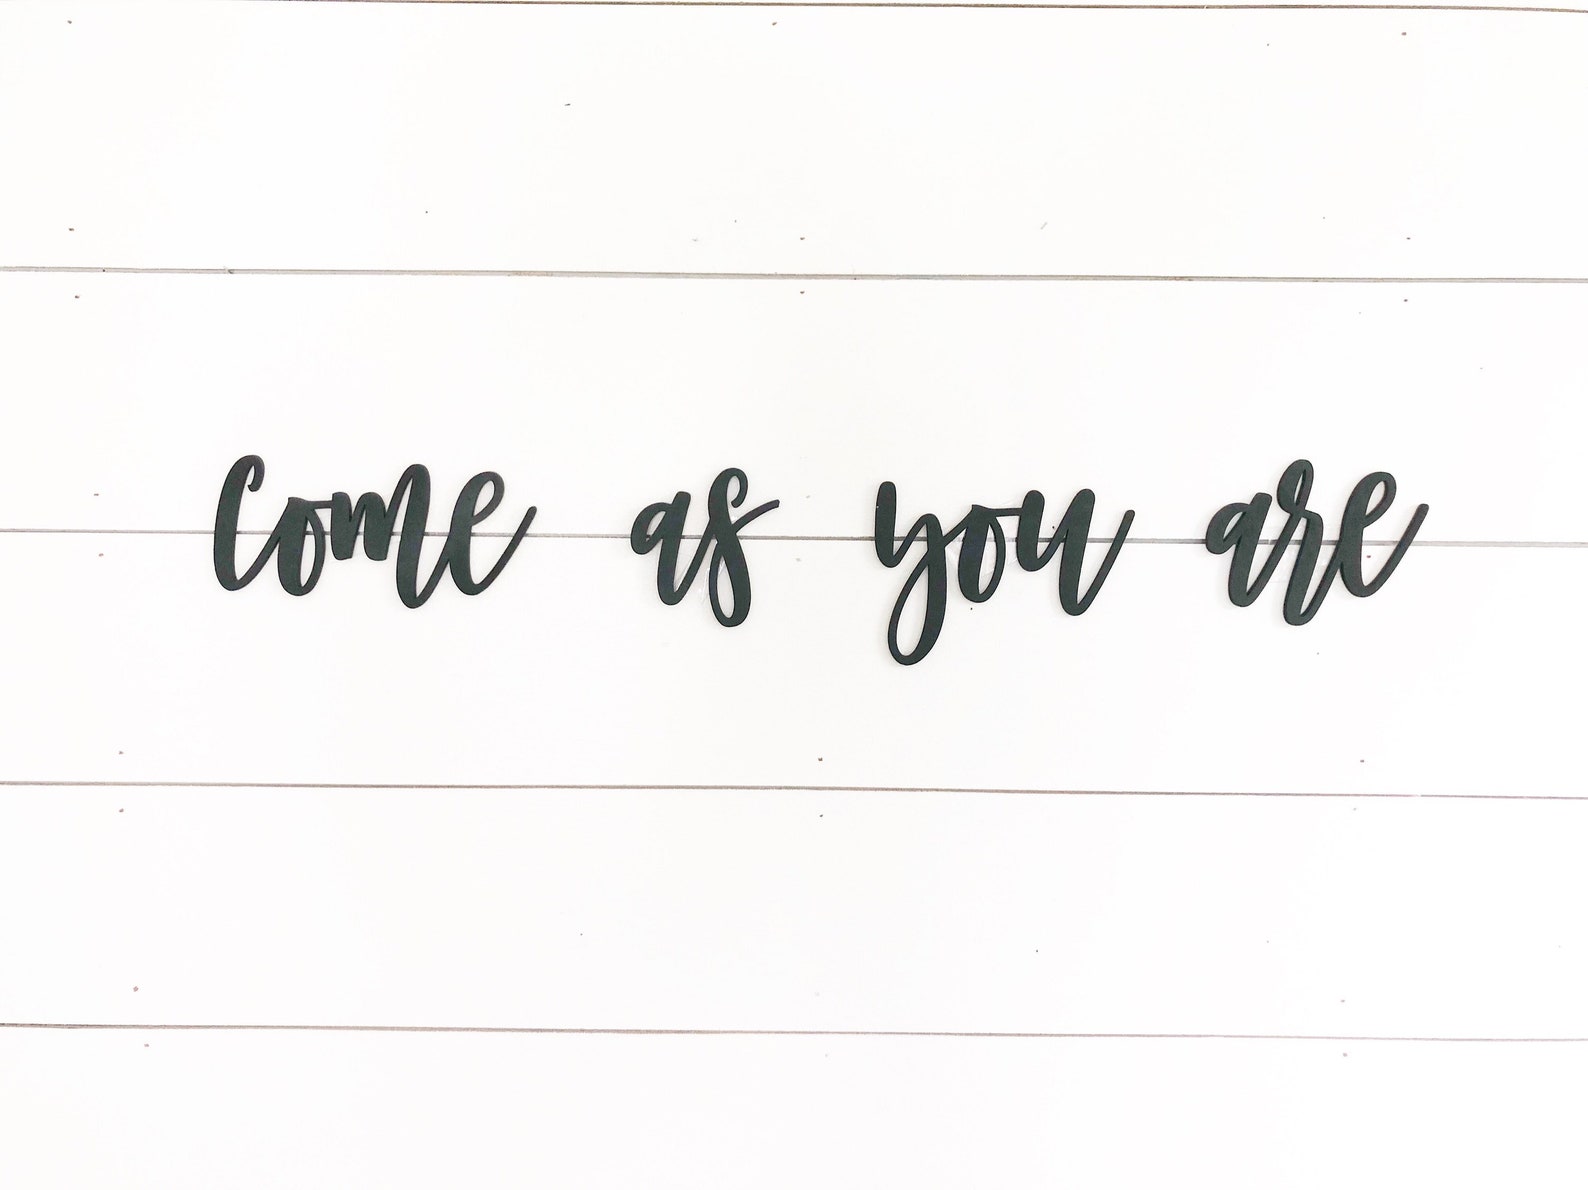 come as you are